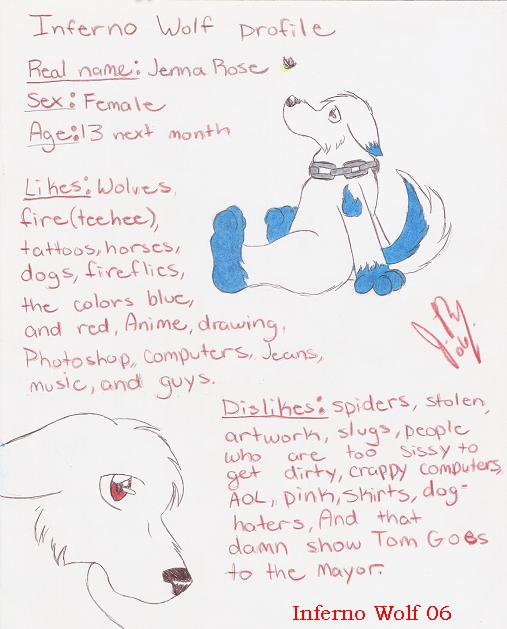 Inferno Wolf Profile
Real name: Jenna Rose
Sex: Female
Age: 13 next month
Likes: Wolves,
fire(teehee),
tattoos, horses,
dogs, fireflies,
the colors blue,
and red, Anime, drawing,
Photoshop, computers, Jeans,
music, and guys.
Dislikes: spiders, stolen,
artwork, slugs, people
who are too sissy to
get dirty, crappy computers,
AOL, pink, skirts, dog-
haters, And that
damn show Tom Goes
to the Mayor.
Inferno Wolf 06